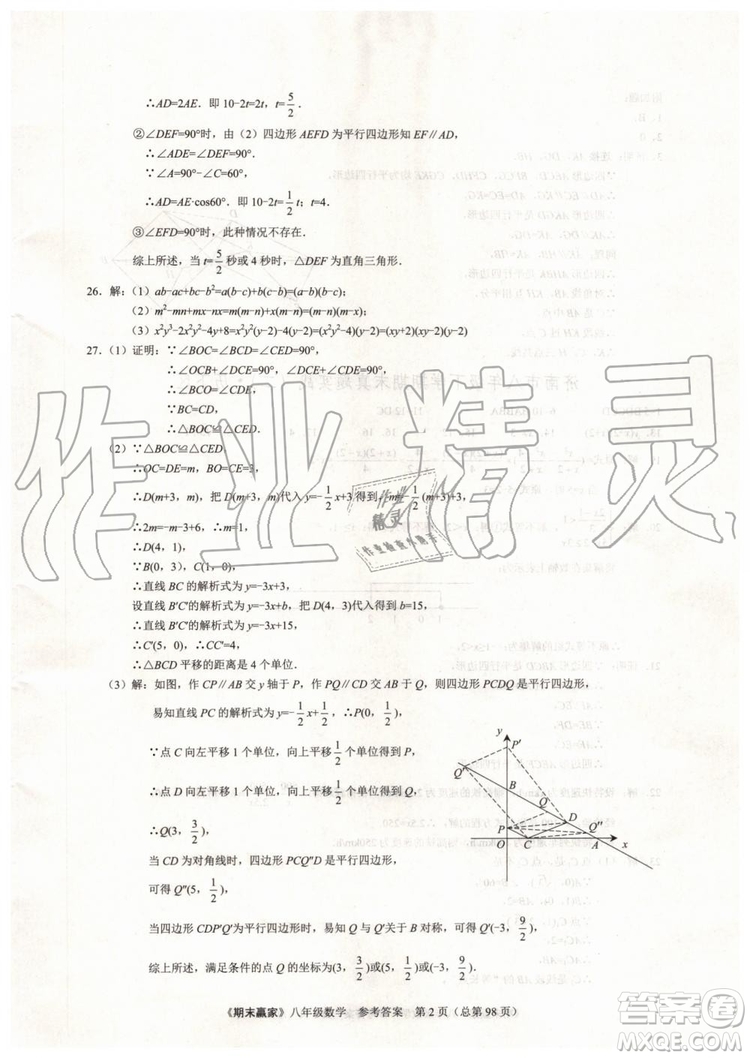 ∴AD=2AE．即 10-2t=2t，t=5/2．
②∠DEF=90°时，由（2）四边形 AEFD 为平行四边形知 EF∥AD，
∴∠ADE=∠DEF=90°．
∵∠A=90°-∠C=60°，
∴AD=AE·cos60°．即 10-2t=1/2 t；t=4．
③∠EFD=90°时，此种情况不存在．
综上所述，当 t=5/2 秒或 4 秒时，△DEF 为直角三角形．
26．解：（1）ab-ac+bc-b²=a(b-c)+b(c-b)=(b-c)(a-b)；
（2）m²-mn+mx-nx=m(m-n)+x(m-n)=(m-n)(m+x)；
（3）x²y³-2x²y²-4y+8=x²y²(y-2)-4(y-2)=(y-2)(x²y²-4)=(y-2)(xy+2)(xy-2)
27．（1）证明：∵∠BOC=∠BCD=∠CED=90°，
∴∠OCB+∠DCE=90°，
（2）∵△BOC≌△CED，
∴OC=DE=m，BO=CE=3，
∴D(m+3，m)，把 D(m+3，m)代入 y=-1/2 x+3
∴2m=-m-3+6，∴m=1，
∴D(4，1)，
∵B(0，3)，C(1，0)，
∴直线 BC 的解析式为 y=-3x+3，
设直线 B′C′的解析式为 y=-3x+b，把 D(4，3)代入得到 b=15，
∴直线 B′C′的解析式为 y=-3x+15，
∴C′(5，0)，∴CC′=4，
∴△BCD 平移的距离是 4 个单位．
（3）解：如图，作 CP∥AB 交 y 轴于 P，作 PQ∥CD 交 AB 于 Q，则四边形 PCDQ 是平行四边形，
易知直线 PC 的解析式为 y=-1/2 x+1/2，∴P(0，1/2)，
∵点 C 向左平移 1 个单位，向上平移 1/2 个单位得到 P，
∴点 D 向左平移 1 个单位，向上平移 1/2 个单位得到 Q，
∴Q(3，3/2)，
当 CD 为对角线时，四边形 PCQ″D 是平行四边形，
可得 Q″(5，1/2)，
当四边形 CDP′Q′为平行四边形时，易知 Q 与 Q′关于 B 对称，可得 Q′(-3，9/2)，
综上所述，满足条件的点 Q 的坐标为(3，3/2)或(5，1/2)或(-3，9/2)．
y
P′
Q′
B
Q
D
P
Q″
O
C
A
x
《期末赢家》八年级数学 参考答案 第 2 页（总第 98 页）
作业精灵
精灵